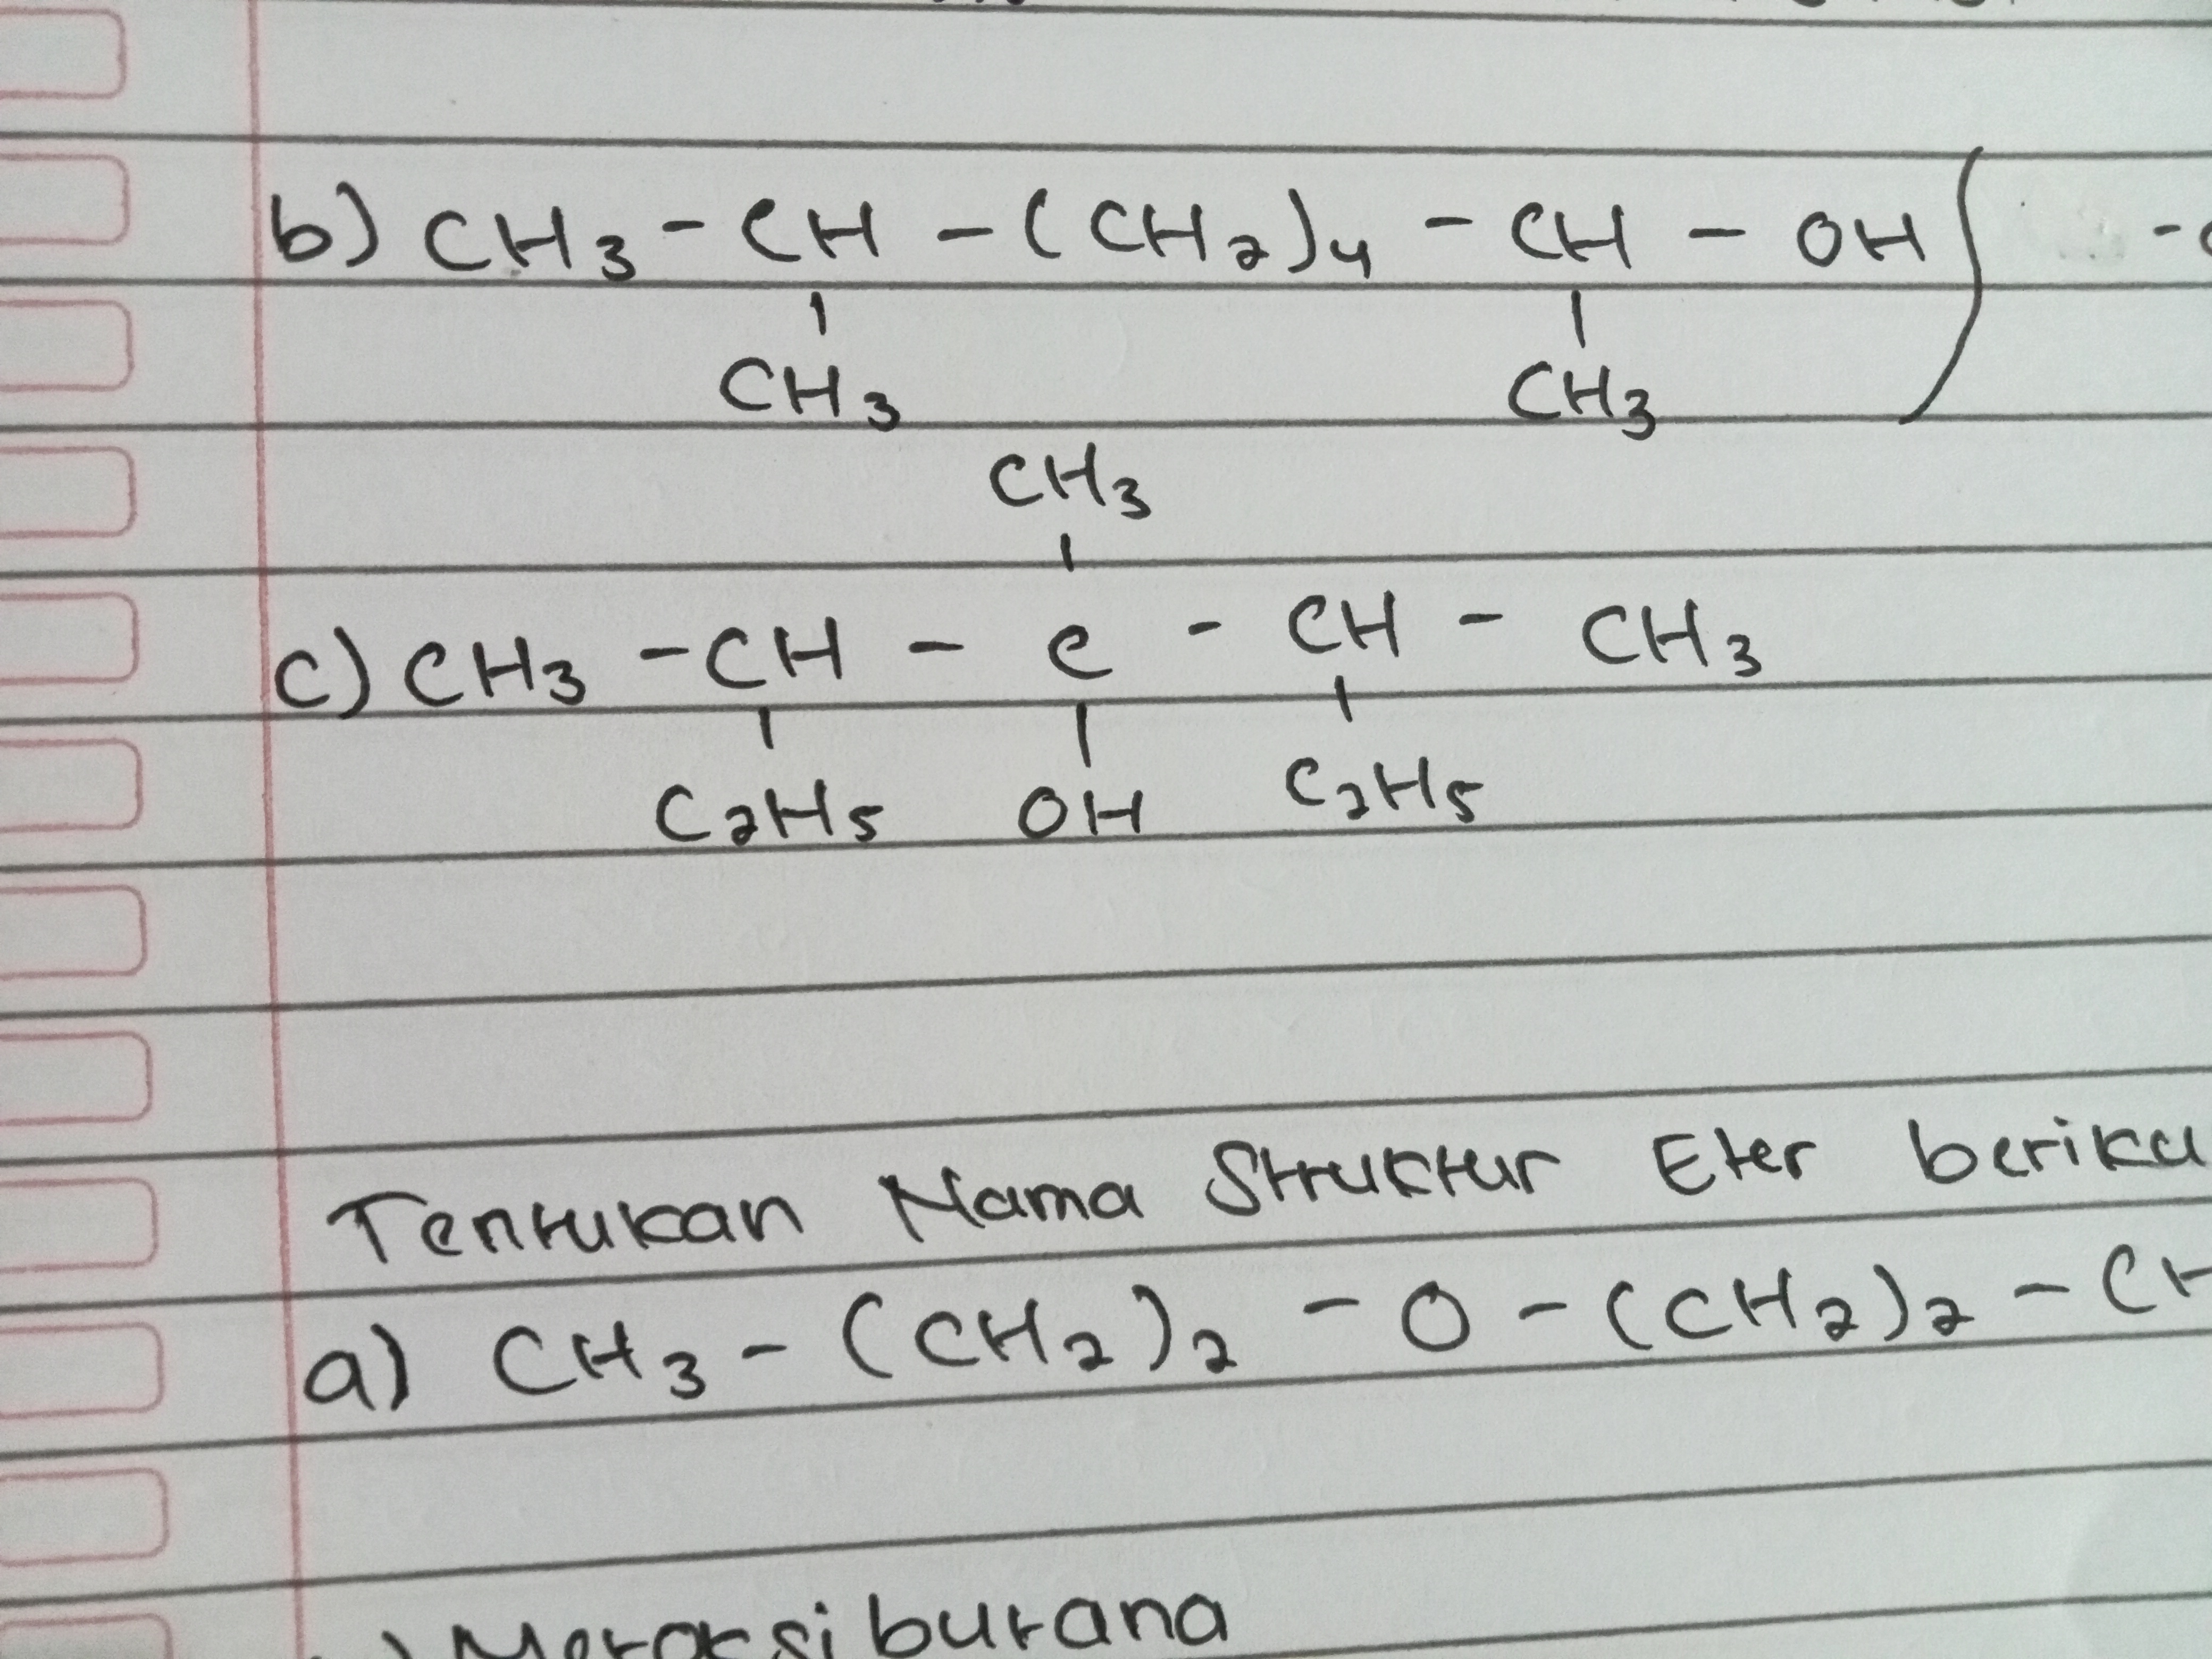 b) CH3 - CH - (CH2)4 - CH - OH
CH3 CH3
CH3
c) CH3 - CH - C - CH - CH3
C2H5 OH C2H5
Tentukan Nama Struktur Eter
a) CH3 - (CH2)2 - O - (CH2)2 -
Metoksi butana